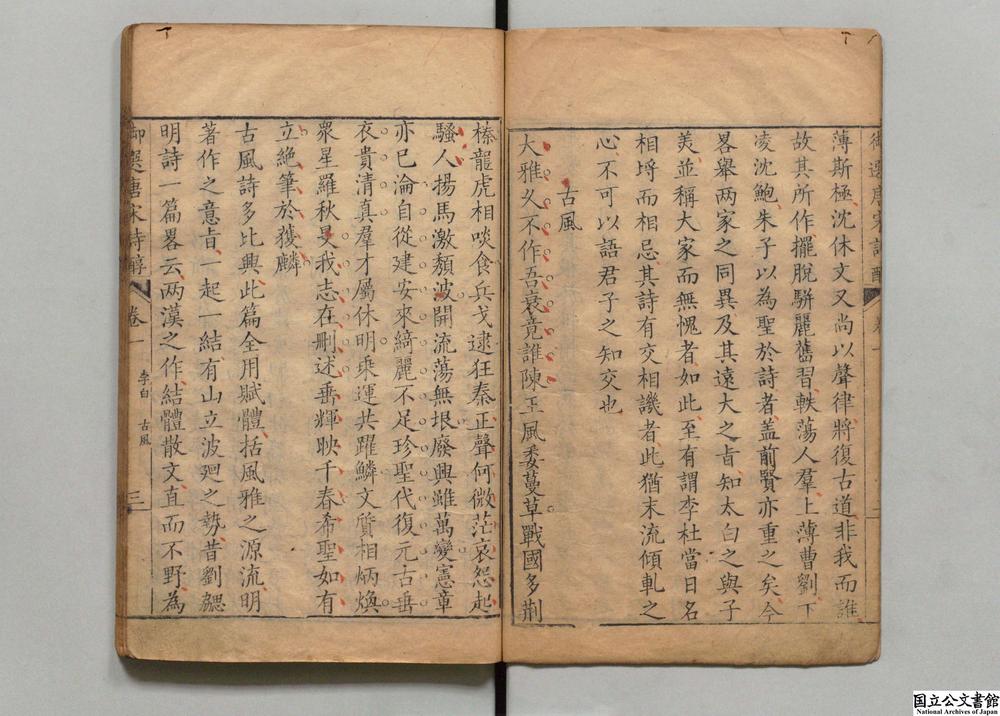 御選唐宋詩醇 卷一 二
薄斯極沈休文又尚以聲律將復古道非我而誰
故其所作擺脫駢麗舊習軼蕩人羣上薄曹劉下
凌沈鮑朱子以為聖於詩者盖前賢亦重之矣今
畧舉两家之同異及其遠大之旨知太白之與子
美並稱大家而無愧者如此至有謂李杜當日名
相埒而相忌其詩有交相譏者此猶末流傾軋之
心不可以語君子之知交也
古風
大雅久不作吾衰竟誰陳王風委蔓草戰國多荆
榛龍虎相啖食兵戈逮狂秦正聲何微茫哀怨起
騷人揚馬激頹波開流蕩無垠廢興雖萬變憲章
亦已淪自從建安來綺麗不足珍聖代復元古垂
衣貴清真羣才屬休明乘運共躍鱗文質相炳煥
衆星羅秋旻我志在刪述垂輝映千春希聖如有
立絶筆於獲麟
古風詩多比興此篇全用賦體括風雅之源流明
著作之意旨一起一結有山立波廻之勢昔劉勰
明詩一篇畧云两漢之作結體散文直而不野為
御選唐宋詩醇 卷一 李白 古風 三
国立公文書館
National Archives of Japan